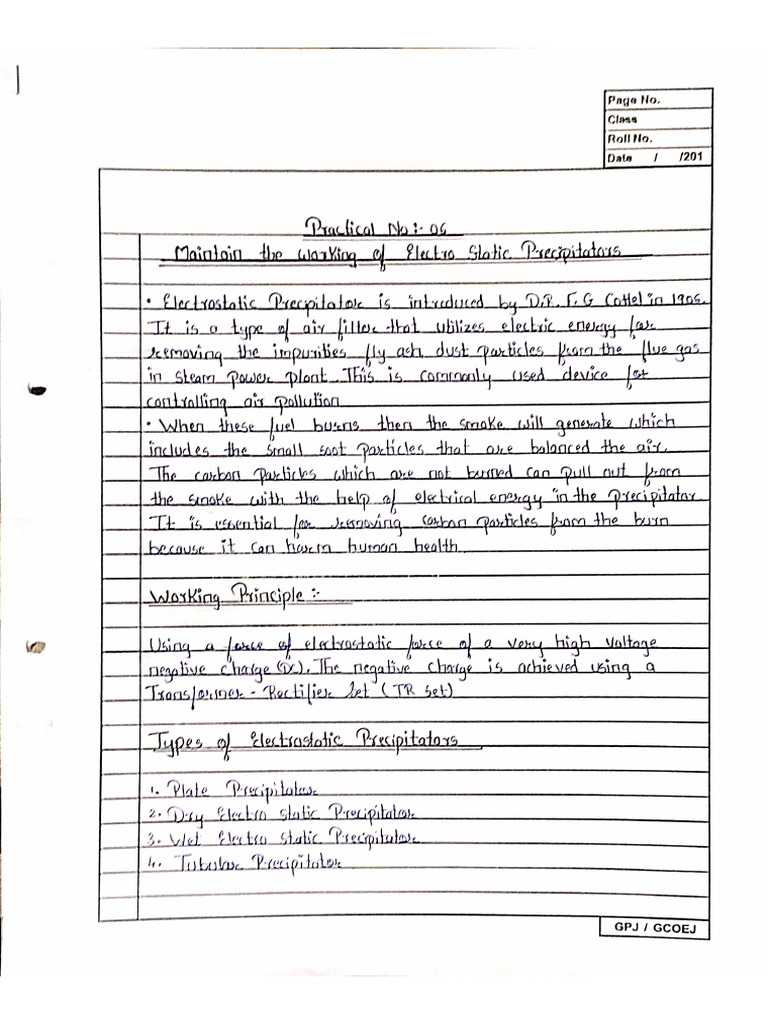 Page No.
Class
Roll No.
Date / /201
Practical No :- 06
Maintain the working of Electro Static Precipitators
• Electrostatic Precipitator is introduced by D.R. F.G Cottel in 1905.
It is a type of air filler that utilizes electric energy for
removing the impurities fly ash, dust particles from the flue gas
in steam power plant. This is commonly used device for
controlling air pollution
• When these fuel burns then the smoke will generate which
includes the small soot particles that are balanced the air.
The carbon particles which are not burned can pull out from
the smoke with the help of electrical energy in the precipitator.
It is essential for removing carbon particles from the burn
because it can harm human health
Working Principle :-
Using a force of electrostatic force of a very high voltage
negative charge (Dc). The negative charge is achieved using a
Transformer - Rectifier Set (TR Set)
Types of Electrostatic Precipitators
1. Plate Precipitator
2. Dry Electro Static Precipitator
3. Wet Electro Static Precipitator
4. Tubular Precipitator
GPJ / GCOEJ